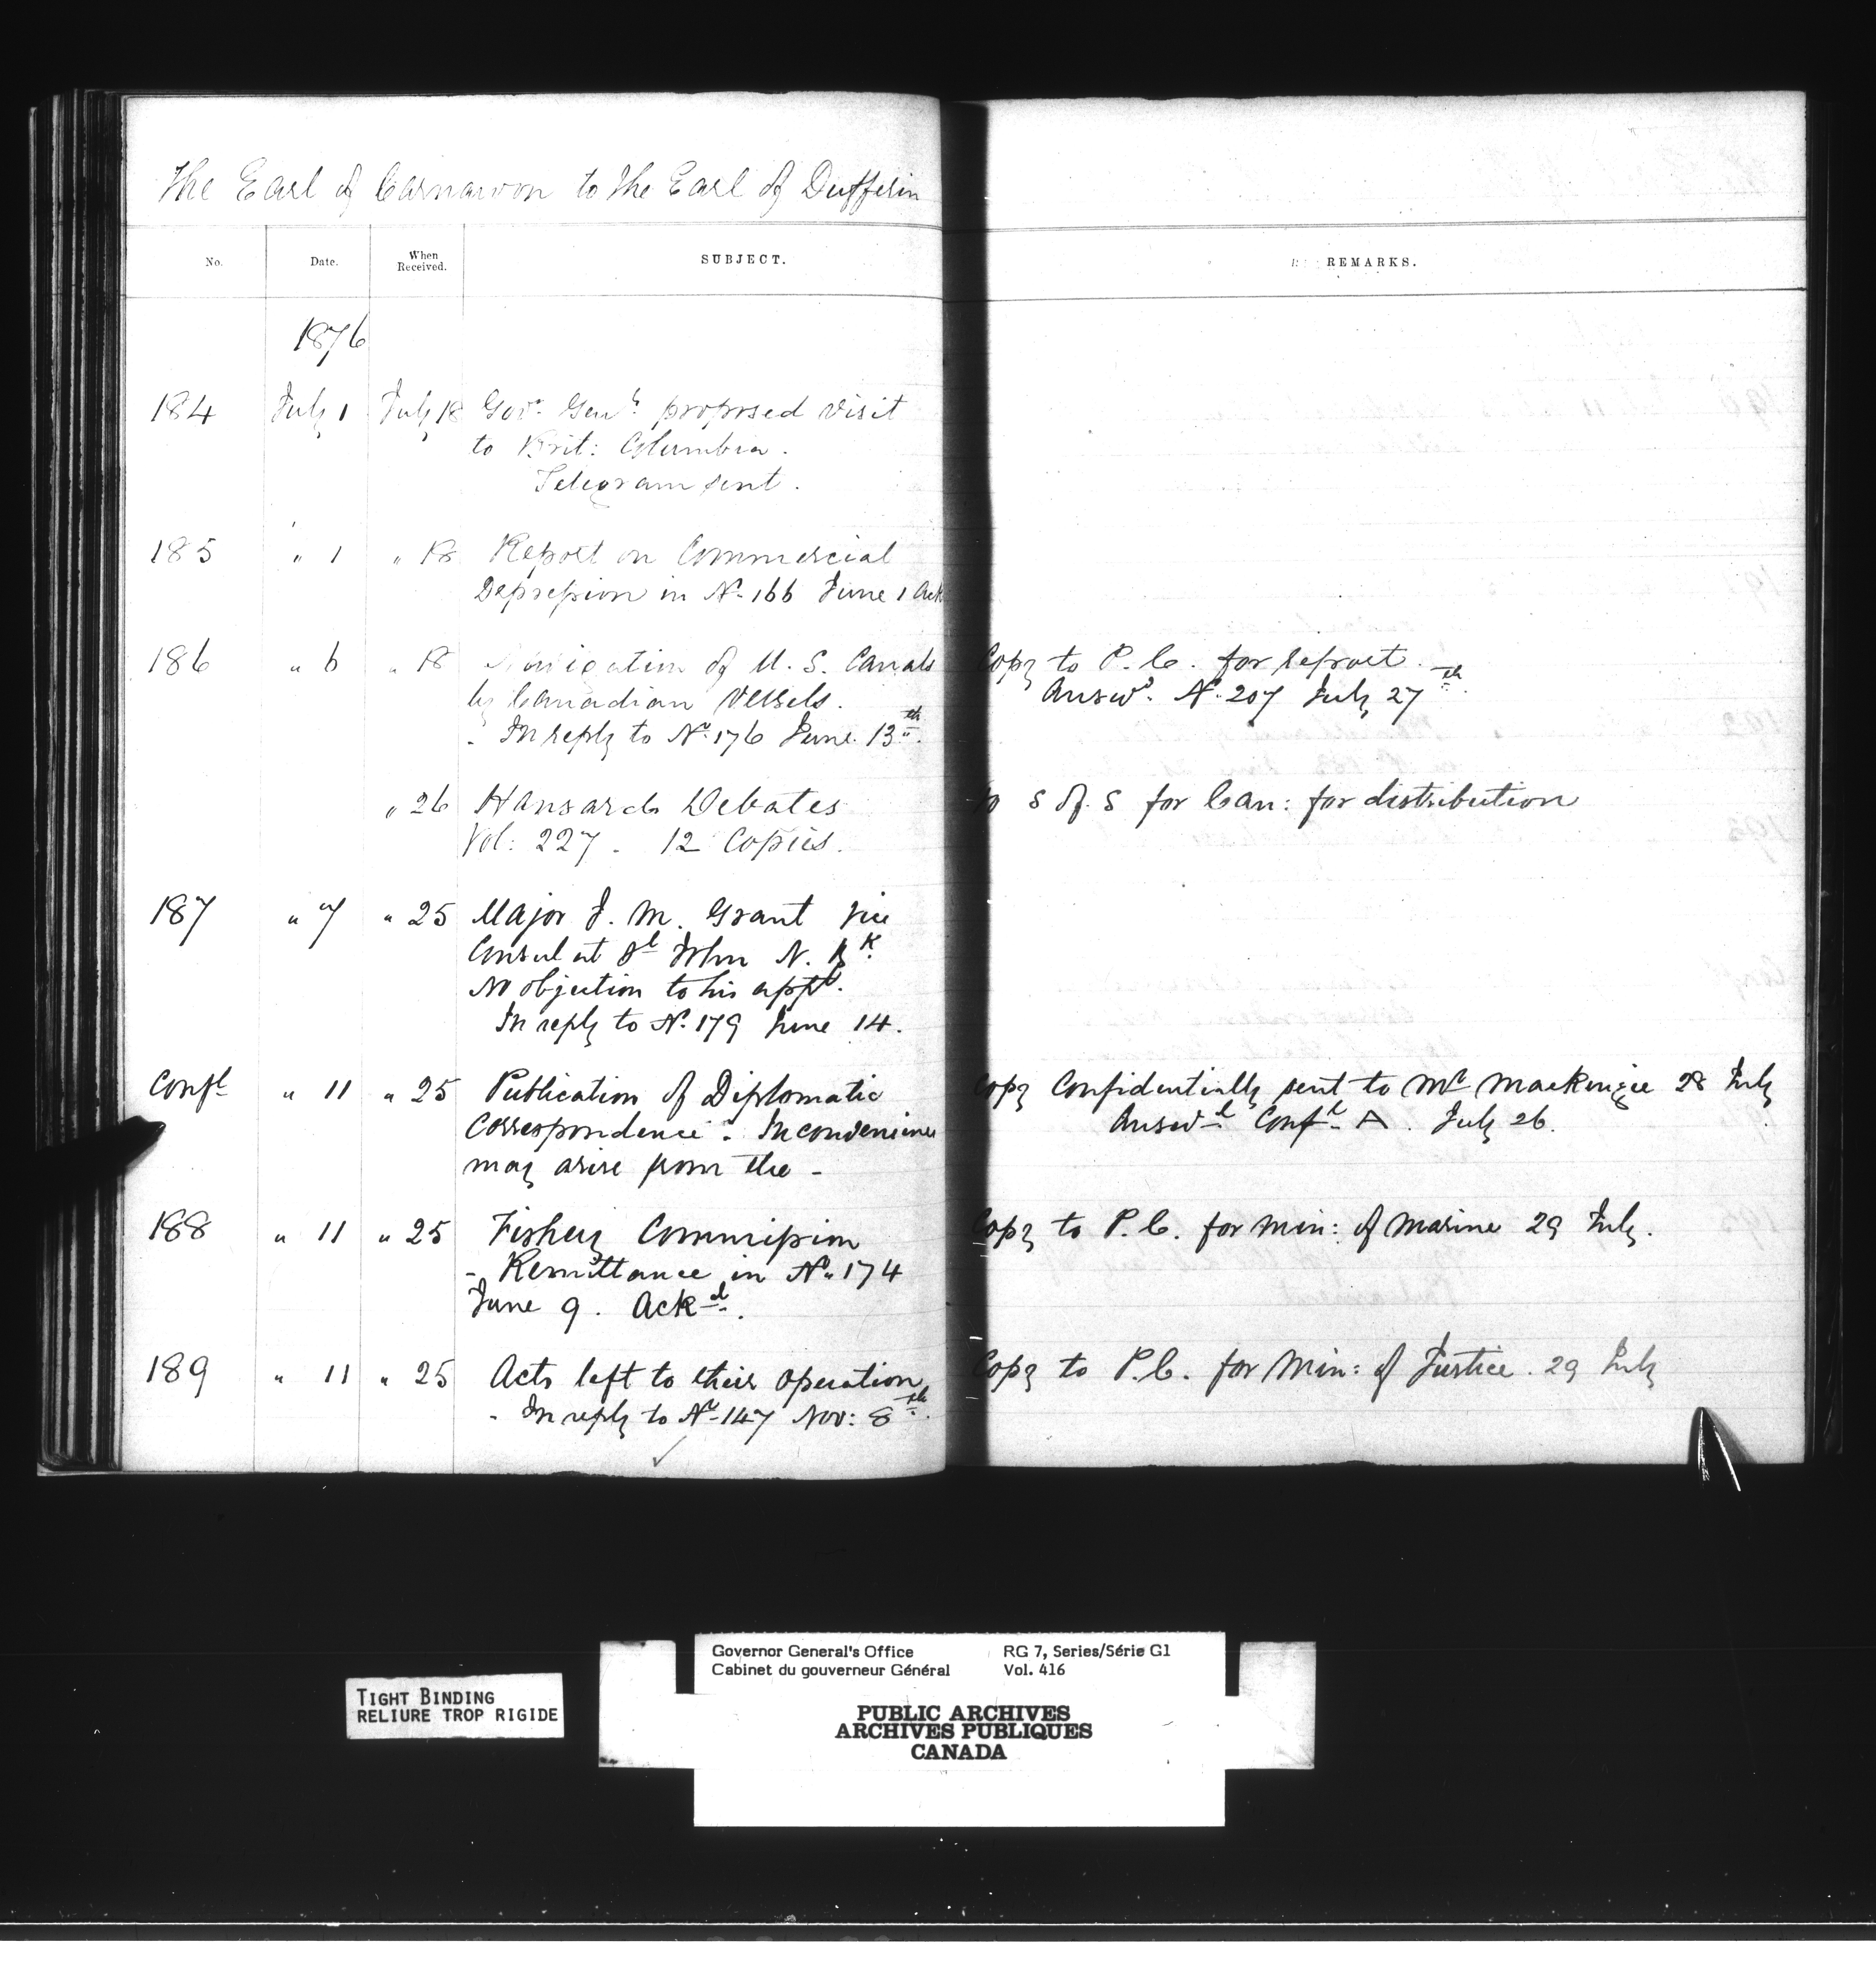 The Earl of Carnarvon to the Earl of Dufferin
No. Date. When Received. SUBJECT. REMARKS.
1876
184 July 1 July 18 Govr. Genls. proposed visit
to Brit: Columbia.
Telegram sent.
185 " 1 " 18 Report on Commercial
Depression in No. 166 June 1 Ack
186 " 6 " 18 Navigation of U. S. Canals Copy to P. C. for report.
by Canadian Vessels. Answd. No. 207 July 27th.
- In reply to No. 176 June 13th.
" 26 Hansards Debates to S of S for Can: for distribution
Vol: 227. 12 Copies.
187 " 7 " 25 Major J. M. Grant Vice
Consul at St John N. Bk.
No objection to his appt.
In reply to No. 179 June 14.
Confl " 11 " 25 Publication of Diplomatic Copy Confidentially sent to Mr Mackenzie 28 July
Correspondence - Inconvenience Answd Confl A. July 26.
may arise from the -
188 " 11 " 25 Fishery Commission Copy to P. C. for Min: of Marine 29 July.
- Remittance in No. 174
June 9. Ackd.
189 " 11 " 25 Acts left to their operation Copy to P. C. for Min: of Justice. 29 July
- In reply to No. 147 Nov: 8th.
TIGHT BINDING
RELIURE TROP RIGIDE
Governor General's Office RG 7, Series/Série G1
Cabinet du gouverneur Général Vol. 416
PUBLIC ARCHIVES
ARCHIVES PUBLIQUES
CANADA